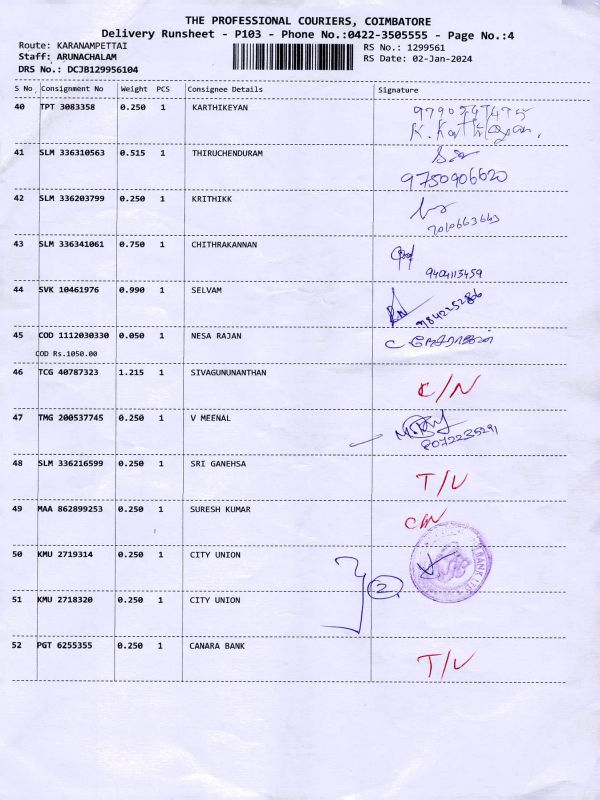 THE PROFESSIONAL COURIERS, COIMBATORE
Delivery Runsheet - P103 - Phone No.:0422-3505555 - Page No.:4
Route: KARANAMPETTAI RS No.: 1299561
Staff: ARUNACHALAM RS Date: 02-Jan-2024
DRS No.: DCJB129956104
S No Consignment No Weight PCS Consignee Details Signature
40 TPT 3083358 0.250 1 KARTHIKEYAN
K. Karthikeyan.
41 SLM 336310563 0.515 1 THIRUCHENDURAM
9750906620
42 SLM 336203799 0.250 1 KRITHIKK
7010663663
43 SLM 336341061 0.750 1 CHITHRAKANNAN
9404113459
44 SVK 10461976 0.990 1 SELVAM
45 COD 1112030330 0.050 1 NESA RAJAN
COD Rs.1050.00
46 TCG 40787323 1.215 1 SIVAGUNUNANTHAN C/N
47 TMG 200537745 0.250 1 V MEENAL
8072235291
48 SLM 336216599 0.250 1 SRI GANEHSA T/L
49 MAA 862899253 0.250 1 SURESH KUMAR C/N
50 KMU 2719314 0.250 1 CITY UNION
2
51 KMU 2718320 0.250 1 CITY UNION
52 PGT 6255355 0.250 1 CANARA BANK T/L